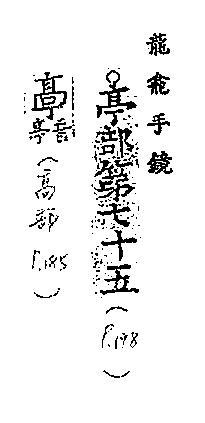 龍龕手鏡
亭部第七十五(P.198)
音亭(高部 P.185)